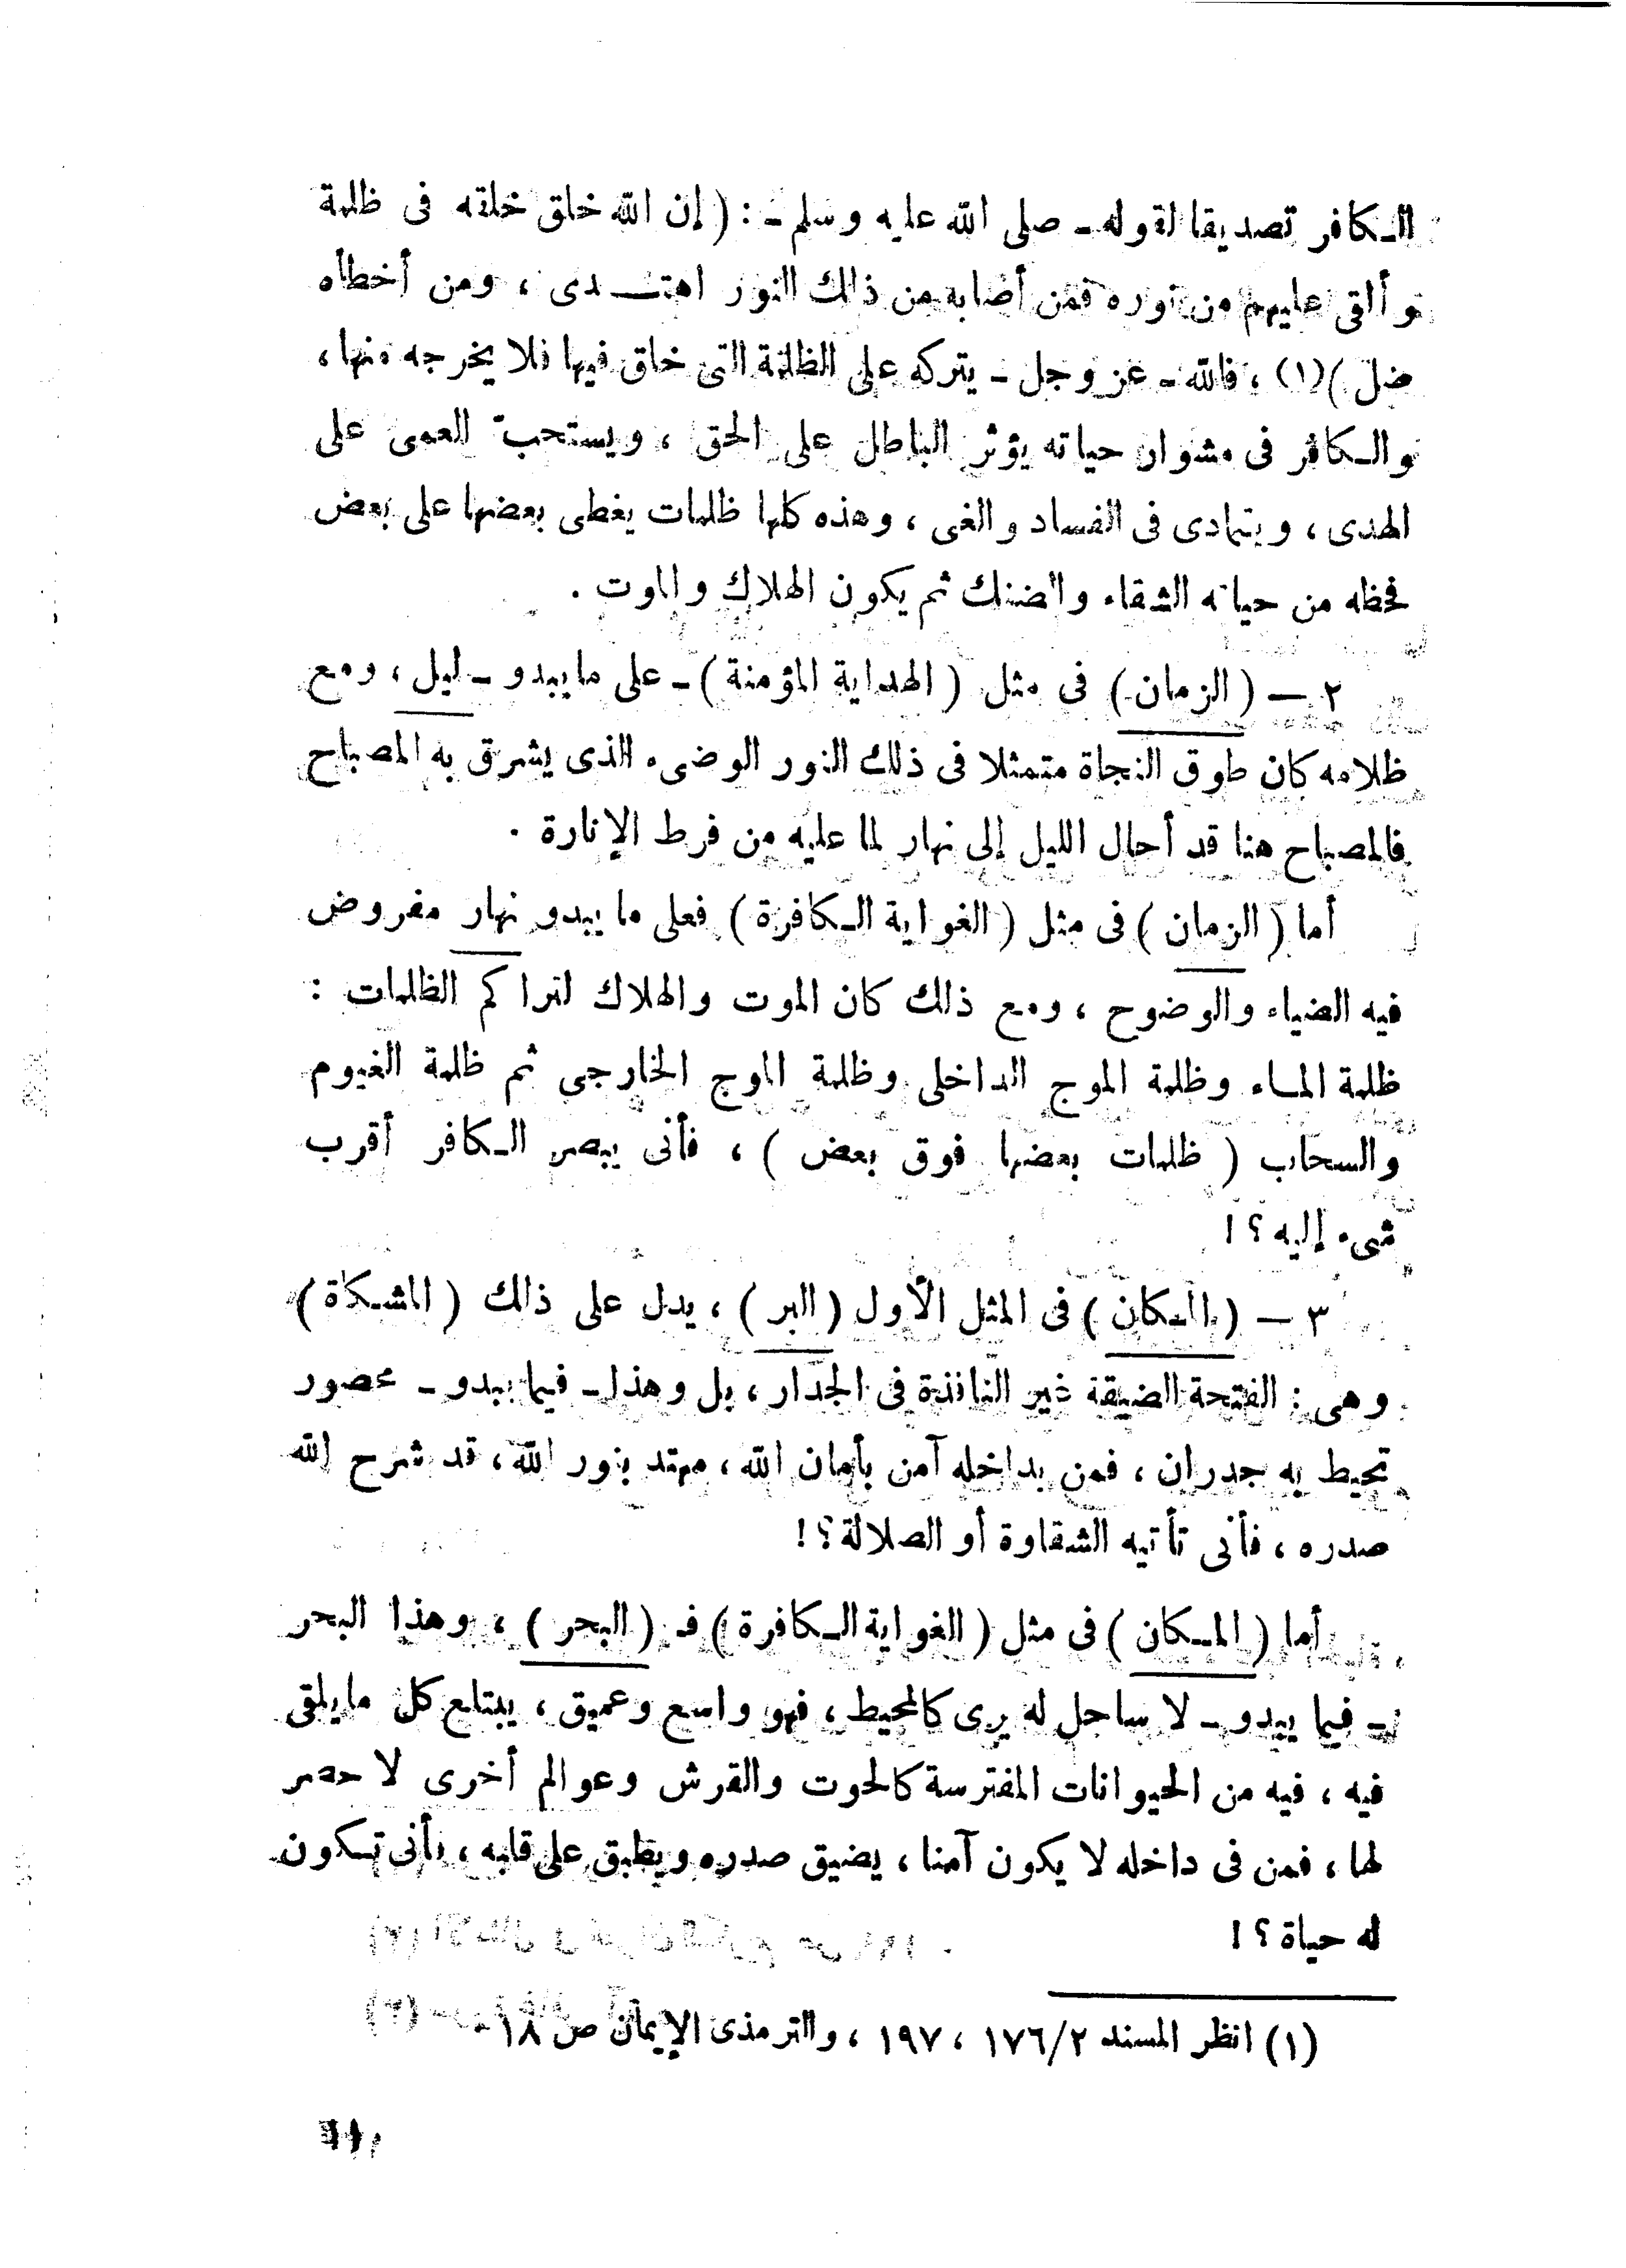 الكافر تصديقا لقوله - صلى الله عليه وسلم - : ( إن الله خلق خلقه فى ظلمة
وألقى عليهم من نوره فمن أصابه من ذلك النور اهتـــدى ، ومن أخطأه
ضل )(١) ، فالله - عز وجل - يتركه على الظلمة التى خلق فيها فلا يخرجه منها ،
والكافر فى مشوار حياته يؤثر الباطل على الحق ، ويستحب العمى على
الهدى ، ويتمادى فى الفساد والغى ، وهذه كلها ظلمات يغطى بعضها على بعض
فحظه من حياته الشقاء والضنك ثم يكون الهلاك والموت .
٢ — ( الزمان ) فى مثل ( الهداية المؤمنة ) - على ما يبدو - ليل ، ومع
ظلامه كان طوق النجاة متمثلا فى ذلك النور الوضىء الذى يشرق به المصباح
فالمصباح هنا قد أحال الليل إلى نهار لما عليه من فرط الإنارة .
أما ( الزمان ) فى مثل ( الغواية الكافرة ) فعلى ما يبدو نهار مفروض
فيه الضياء والوضوح ، ومع ذلك كان الموت والهلاك لتراكم الظلمات :
ظلمة الماء وظلمة الموج الداخلى وظلمة الموج الخارجى ثم ظلمة الغيوم
والسحاب ( ظلمات بعضها فوق بعض ) ، فأنى يبصر الكافر أقرب
شىء إليه ؟ !
٣ — ( المكان ) فى المثل الأول ( البر ) ، يدل على ذلك ( المشكاة )
وهى : الفتحة الضيقة غير النافذة فى الجدار ، بل وهذا - فيما يبدو - محصور
تحيط به جدران ، فمن بداخله آمن بأمان الله ، مهتد بنور الله ، قد شرح الله
صدره ، فأنى تأتيه الشقاوة أو الضلالة ؟ !
أما ( المكان ) فى مثل ( الغواية الكافرة ) فـ ( البحر ) ، وهذا البحر
- فيما يبدو - لا ساحل له يرى كالمحيط ، فهو واسع وعميق ، يبتلع كل ما يلقى
فيه ، فيه من الحيوانات المفترسة كالحوت والقرش وعوالم أخرى لا حصر
لها ، فمن فى داخله لا يكون آمنا ، يضيق صدره ويطبق على قلبه ، فأنى تكون
له حياة ؟ !
(١) انظر المسند ١٧٦/٢ ، ١٩٧ ، والترمذى الإيمان ص ١٨